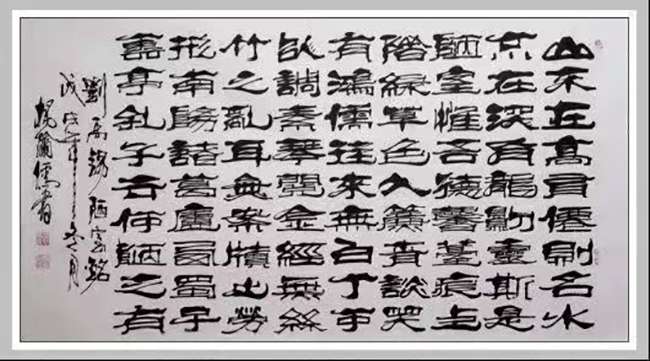 山不在高有僊則名水
不在深有龍則靈斯是
陋室惟吾德馨苔痕上
階綠草色入簾青談笑
有鴻儒往來無白丁可
以調素琴閱金經無絲
竹之亂耳無案牘之勞
形南陽諸葛廬西蜀子
雲亭孔子云何陋之有
劉禹錫陋室銘
戊戌年冬月
楊爾儒書